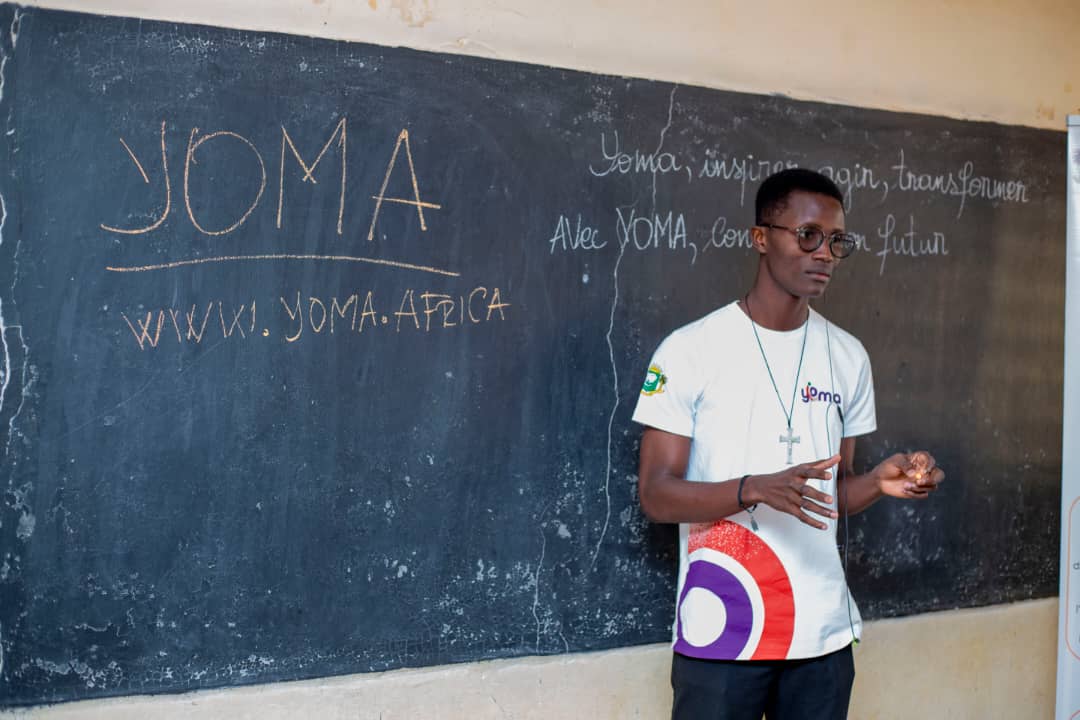 YOMA
WWW.YOMA.AFRICA
Yoma, inspirer, agir, transformer
Avec YOMA, ton futur
yoma